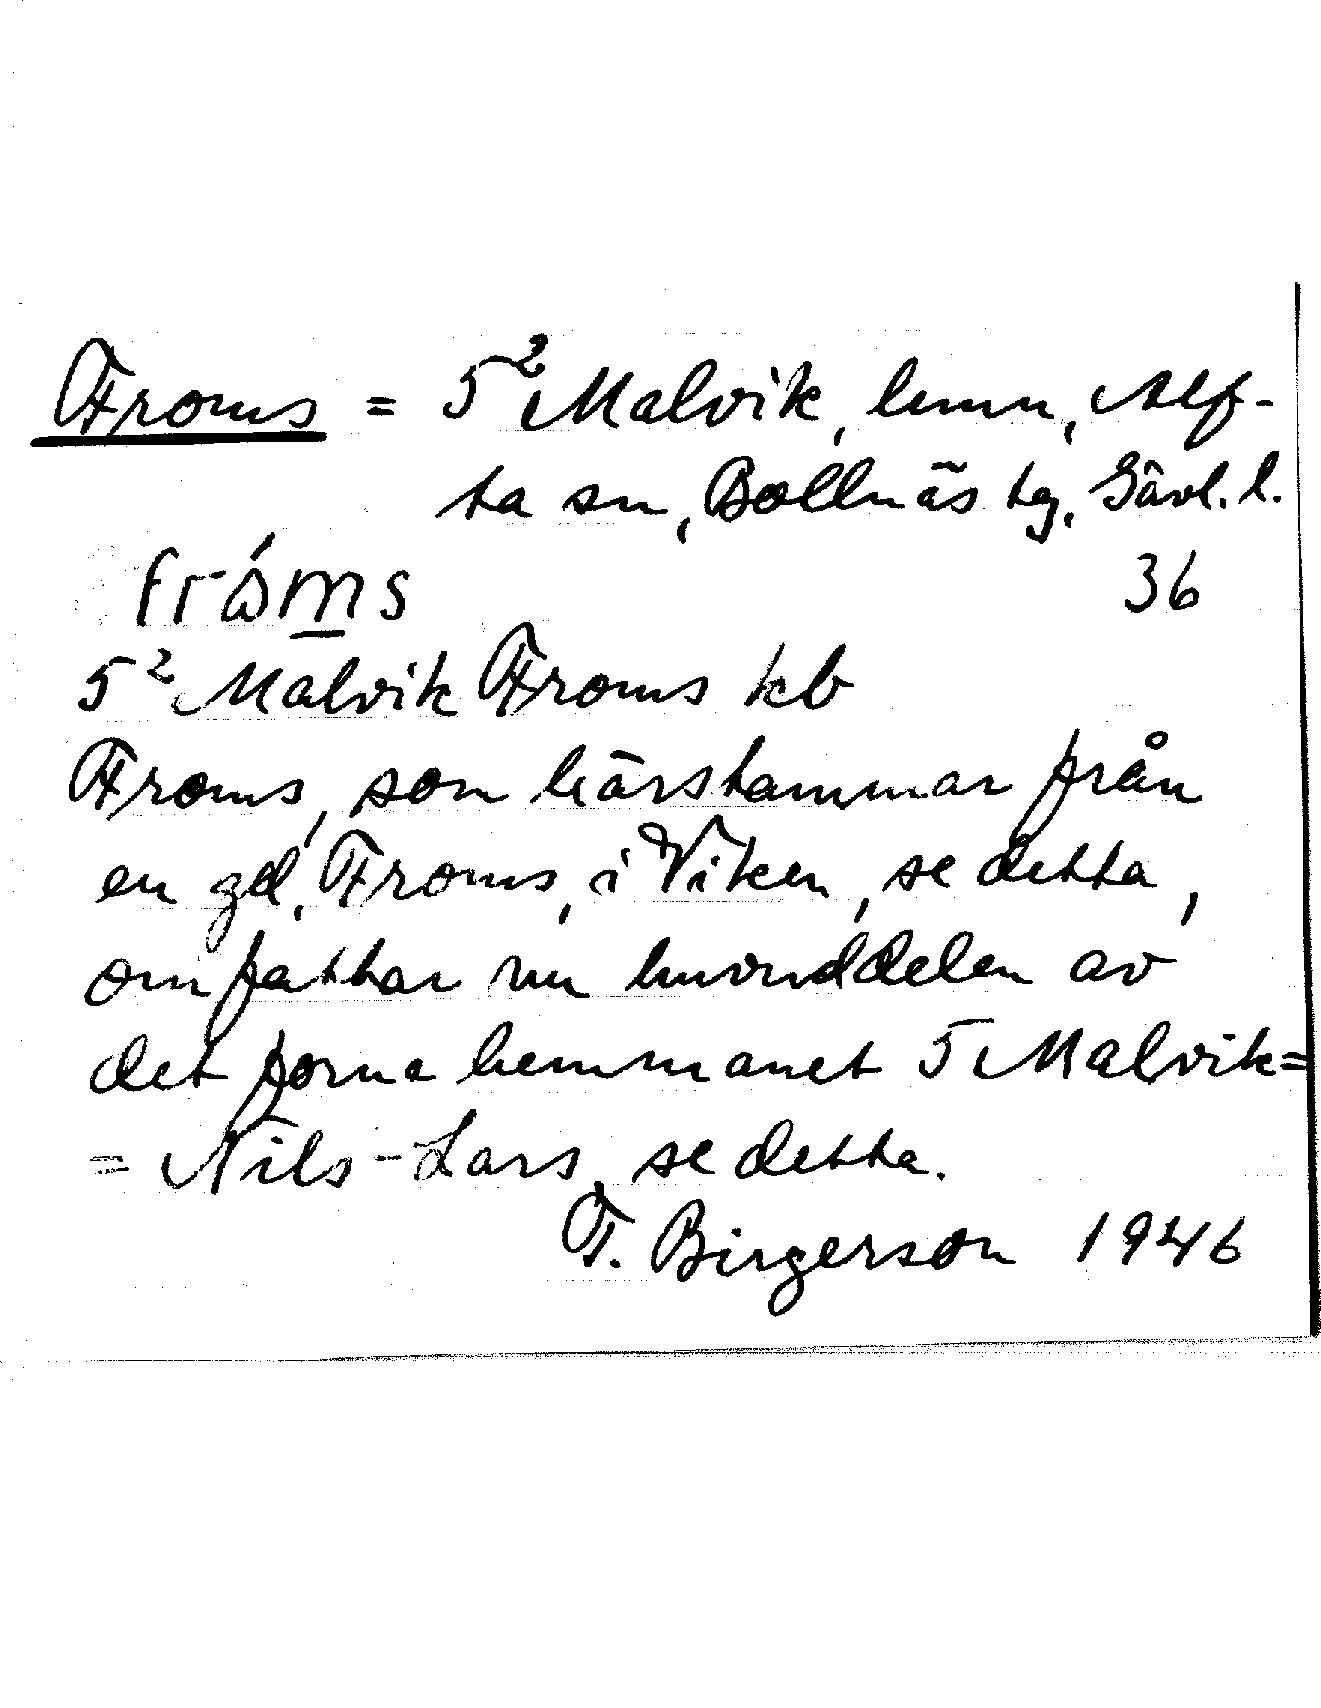 Froms = 5² Malvik, hmn, Alf-
ta sn, Bollnäs tg, Gävl. l.
fråm̲s 36
5² Malvik Froms kb
Froms, som härstammar från
en gd, Froms, i Viken, se detta,
omfattar nu huvuddelen av
det forna hemmanet 5 Malvik=
= Nils-Lars, se detta.
T. Birgerson 1946